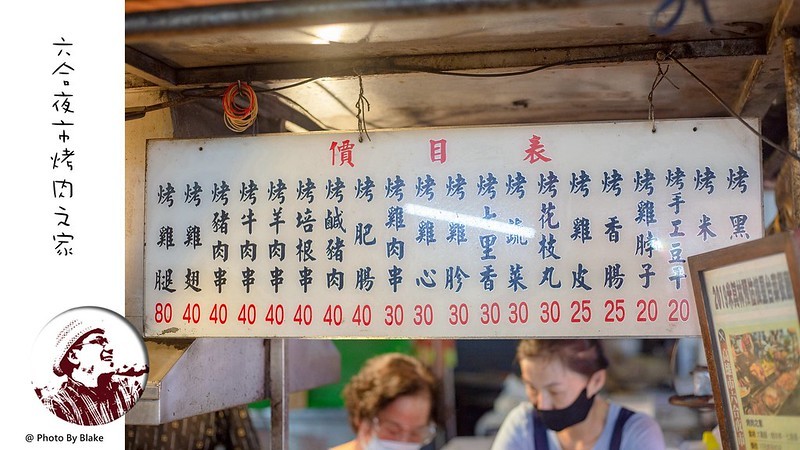 六合夜市烤肉之家
價目表
烤雞腿 80
烤雞翅 40
烤豬肉串 40
烤牛肉串 40
烤羊肉串 40
烤培根串 40
烤鹹豬肉 40
烤肥腸 40
烤雞肉串 30
烤雞心 30
烤雞胗 30
烤七里香 30
烤蔬菜 30
烤花枝丸 30
烤雞皮 25
烤香腸 25
烤雞脖子 20
烤手工豆干 20
烤米
烤黑
@ Photo By Blake